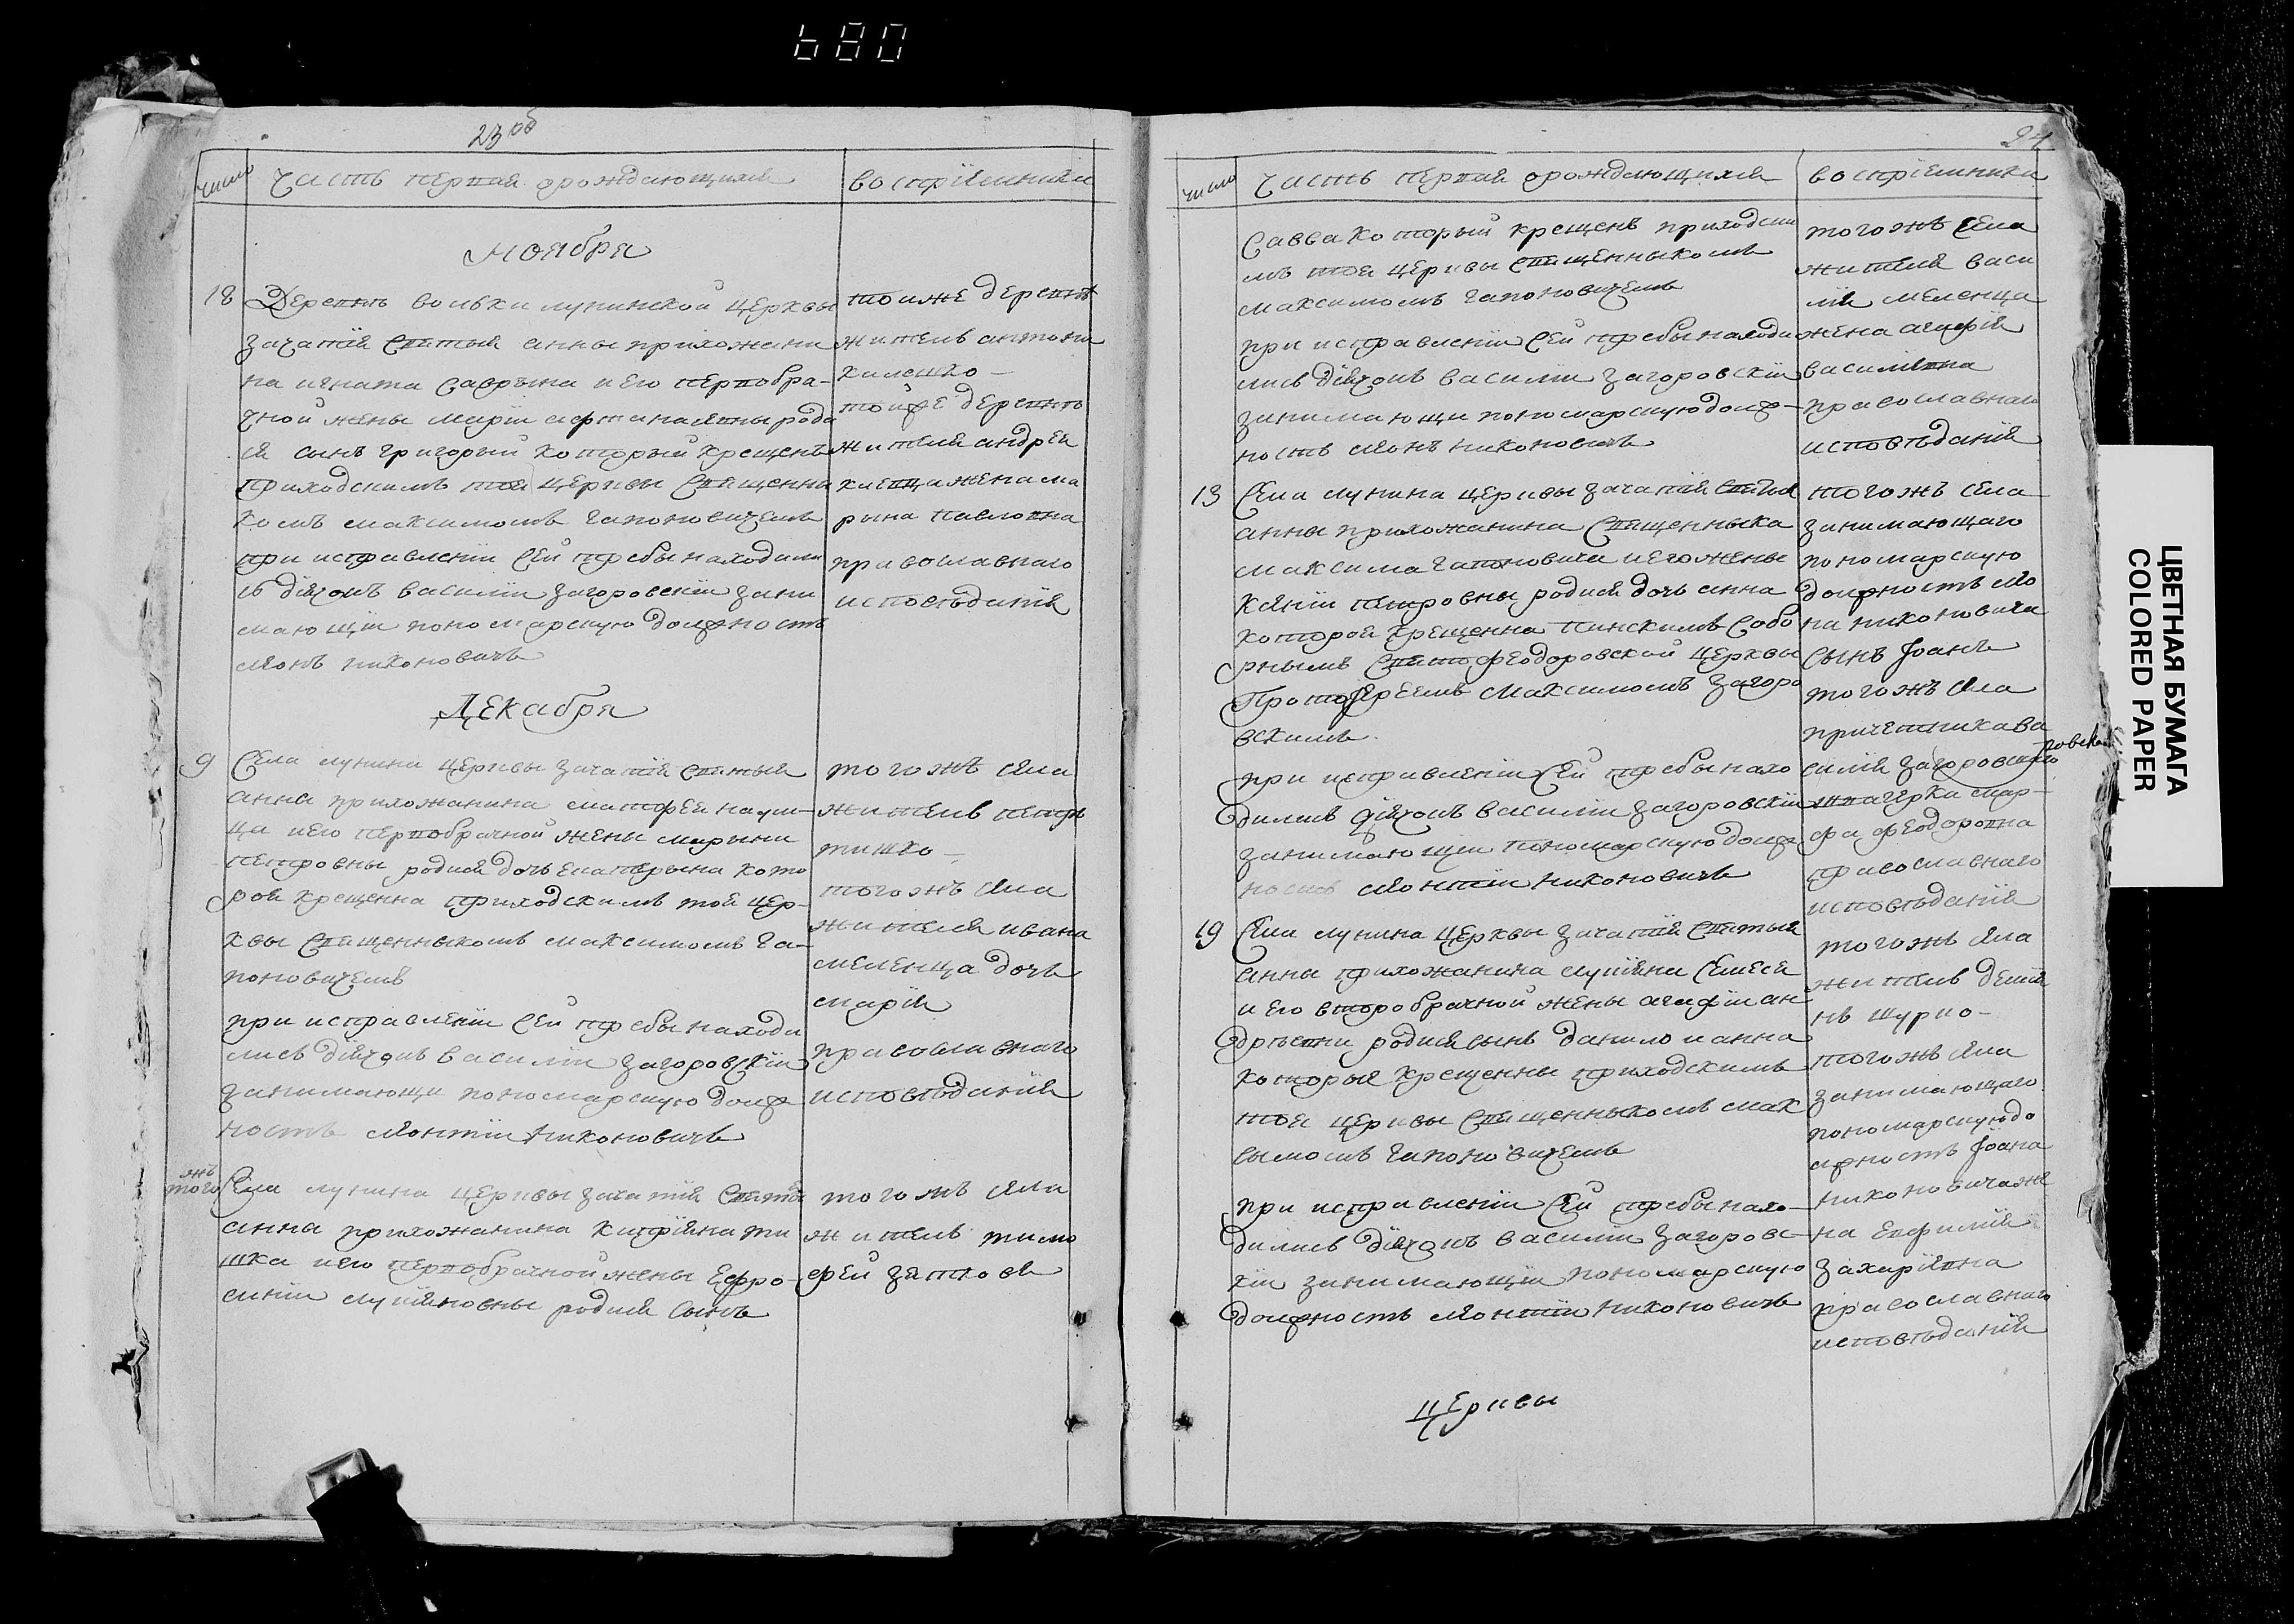 680
23 об
число
часть первая о рождающихся
воспріемники
Ноября
18
Деревнѣ вольки лунинской церквы
зачатія святыя анны прихожани
на игната Савръша и его первобра-
чной жены маріи афтанасевны роди
ся сынъ григорый который крещенъ
приходскимъ тоя церквы Священны
комъ максимомъ гапоновичемъ
при исправленіи сей требы находили
сь діячокъ василій загоровскій зани
мающій пономарскую должность
леонъ никоновичъ
тоиже деревнѣ
житель антони
калешко -
тойже деревнѣ
жителя андрея
жена ма
рына павловна
православнаго
исповѣданія
Декабря
9
Села лунина церквы зачатія святыя
анны прихожанина матфея
ца и его первобрачной жены марыны
петровны родися дочь екатерына кото
рая крещенна приходскимъ тоя цер-
квы Священныкомъ максимомъ га-
поновичемъ
при исправленіи сей требы находи
лись діячокъ василій загоровскій
занимающи пономарскую долж
ность леонтій никоновичъ
тогожъ села
житель петръ
тишко -
тогожъ села
жителя ивана
меленца дочь
марія
православнаго
исповѣданія
того
жъ
Села лунина церквы зачатія святыя
анны прихожанина кипріяна ти
шка и его первобрачной жены Ефро-
синіи лукіяновны родися Сынъ
тогожъ села
житель тимо
фей
24
число
часть первая о рождающихся
воспріемники
Савва который крещенъ приходски
мъ тоя церквы священныкомъ
максимомъ гапоновичемъ
при исправленіи сей требы находи
лись діячокъ василій загоровскій
занимающи пономарскую долж-
ность леонъ никоновичъ
тогожъ села
жителя васи
лія меленца
жена агафія
василевна
православнаго
исповѣданія
13
Села лунина церквы зачатія святыя
анны прихожанина Священныка
максима гапоновича и его жены
ксеніи петровны родися дочь анна
которая крещенна пинскимъ Собо
рнымъ Святофеодоровской церквы
Протоіереемъ максимомъ загоро
вскимъ.
при исправленіи сей требы нахо
дились діячокъ василій загоровскій
занимающи пономарскую долж
ность леонтій никоновичъ
тогожъ села
занимающаго
пономарскую
должность лео
на никоновича
сынъ Іоанъ
тогожъ села
причетника ва
силія загоровскаго
мар-
фа феодоровна
православнаго
исповѣданія
19
Села лунина церквы зачатія святыя
анны прихожанина лукіяна
и его второбрачной жены агафіи ан
дрѣевны родися сынъ данило и анна
которыя крещенны приходскимъ
тоя церквы Священныкомъ мак
сымомъ гапоновичемъ
при исправленіи сей требы нахо-
дились діячокъ василій загоровс-
кій занимающій пономарскую
должность леонтій никоновичъ
тогожъ села
житель демія
нъ шурпо -
тогожъ села
занимающаго
пономарскую до
лжность Іоана
никоновича же
на Евфимія
захаріевна
православнаго
исповѣданія
церквы
ЦВЕТНАЯ БУМАГА
COLORED PAPER